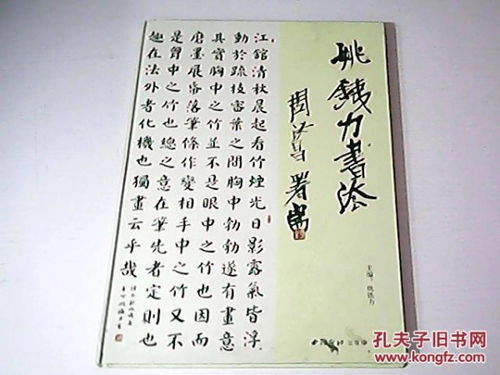 姚鐵力書法
署耑
江館清秋晨起看竹煙光日影露氣皆浮
動於疏枝密葉之間胸中勃勃遂有畫意
其實胸中之竹並不是眼中之竹也因而
磨墨展帋落筆倏作變相手中之竹又不
是胸中之竹也總之意在筆先者定則也
趣在法外者化機也獨畫云乎哉
主编：姚铁力
西泠印社出版社
孔夫子旧书网
www.kongfz.com